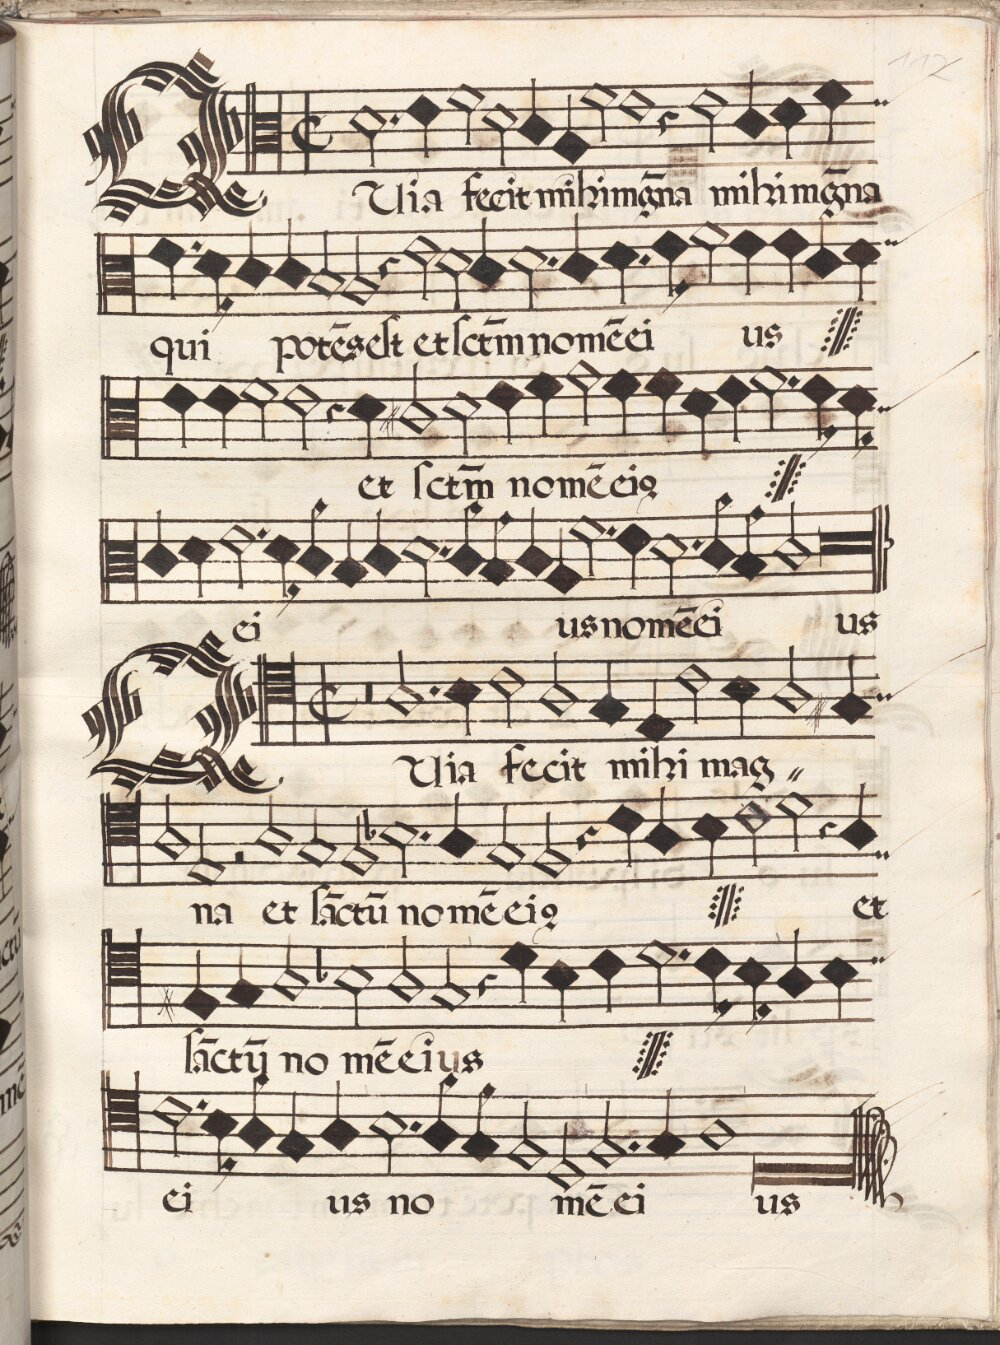 112
QUia fecit mihi mḡna mihi mḡna
qui potēs est et sctm̄ nomē ei us
et sctm̄ nomē eiꝯ
ei us nomē ei us
QUia fecit mihi mag
na et sāctū nomē eiꝯ et
sāctū no mē eius
ei us no mē ei us